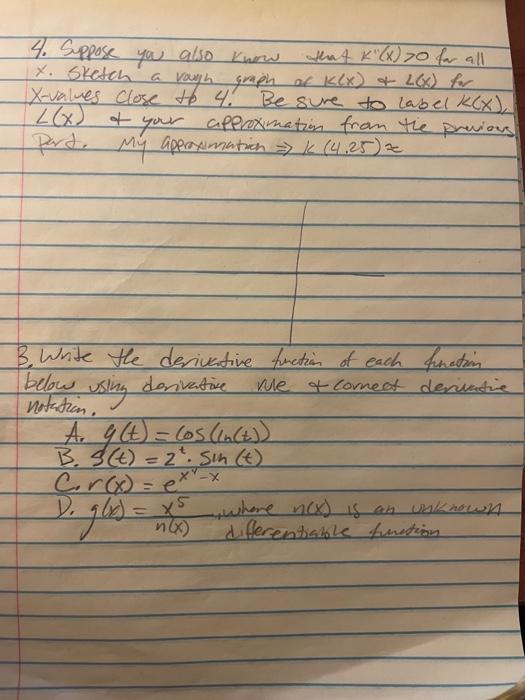 4. Suppose you also know that K"(x) >0 for all
x. Sketch a rough graph of K(x) & L(x) for
X-values close to 4. Be sure to label K(x),
L(x) & your approximation from the previous
part. My approximation ⇒ K (4.25) ≈
3. Write the derivative function of each function
below using derivative rule & correct derivative
notation.
A. g(t) = cos(ln(t))
B. S(t) = 2^t · Sin (t)
C. r(x) = e^{x^4-x}
D. g(x) = x^5/n(x), where n(x) is an unknown
differentiable function